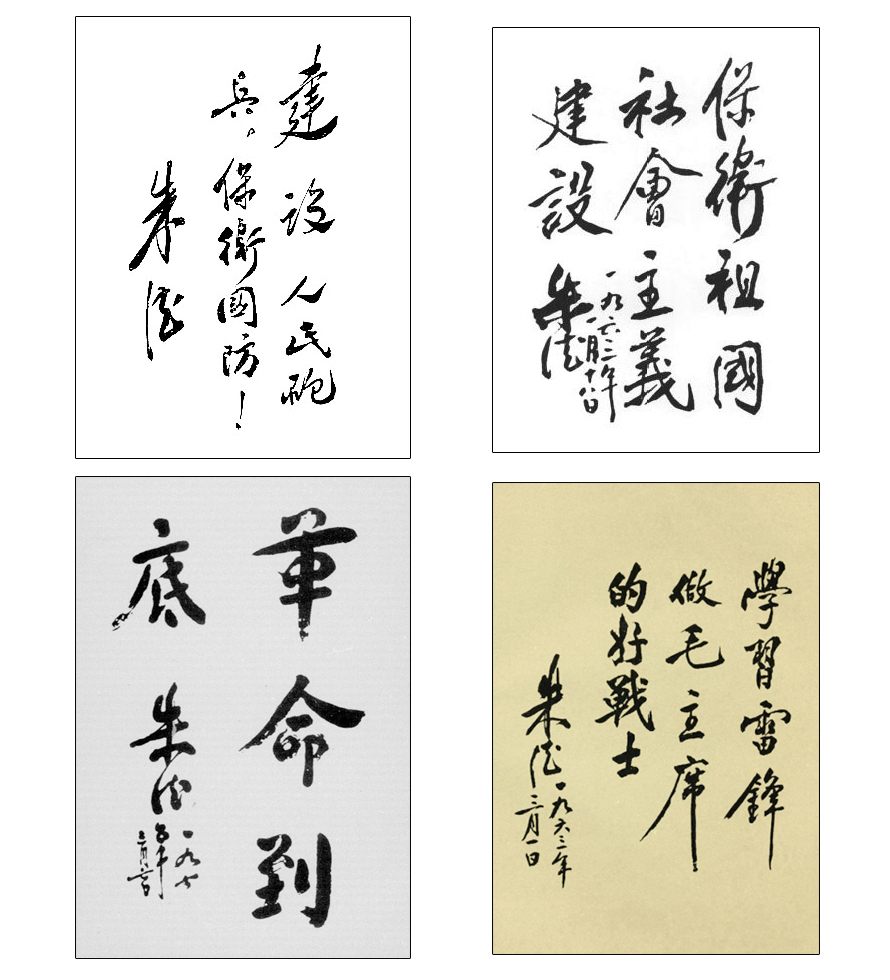 建設人民砲
兵,保衛國防!
朱德
保衛祖國
社會主義
建設
朱德
革命到
底
朱德
一九七
五年
三月六日
學習雷鋒
做毛主席
的好戰士
朱德
一九六三年
三月一日